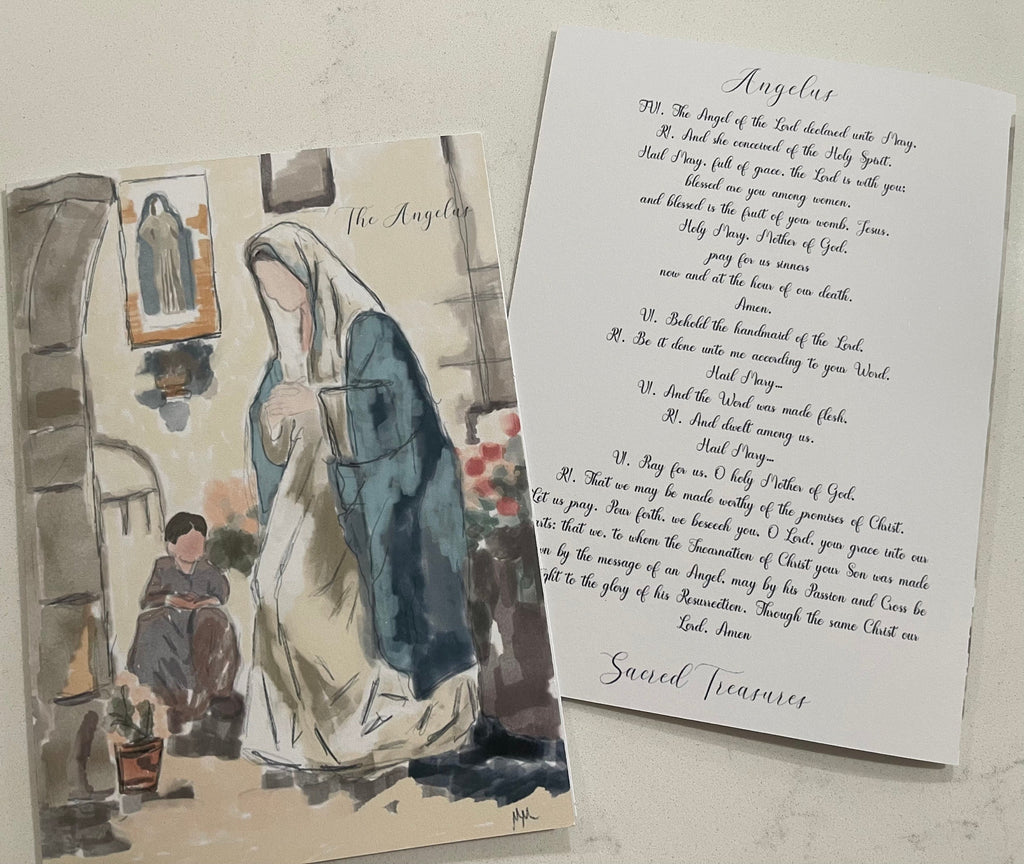 The Angelus
MM
Angelus
V/. The Angel of the Lord declared unto Mary.
R/. And she conceived of the Holy Spirit.
Hail Mary, full of grace, the Lord is with you;
blessed are you among women,
and blessed is the fruit of your womb, Jesus.
Holy Mary, Mother of God,
pray for us sinners
now and at the hour of our death.
Amen.
V/. Behold the handmaid of the Lord.
R/. Be it done unto me according to your Word.
Hail Mary...
V/. And the Word was made flesh.
R/. And dwelt among us.
Hail Mary...
V/. Pray for us, O holy Mother of God,
R/. That we may be made worthy of the promises of Christ.
Let us pray. Pour forth, we beseech you, O Lord, your grace into our
that we, to whom the Incarnation of Christ your Son was made
by the message of an Angel, may by his Passion and Cross be
to the glory of his Resurrection. Through the same Christ our
Lord. Amen
Sacred Treasures